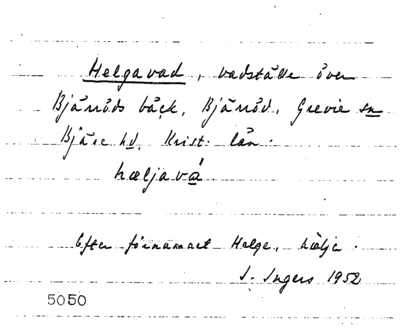 Helgavad, vadställe över
Bjäröds bäck, Bjäröd, Grevie sn
Bjäre hd. Krist. län.
hæljavá
Efter förnamnet Helge, hælje.
I. Ingers 1952
5050